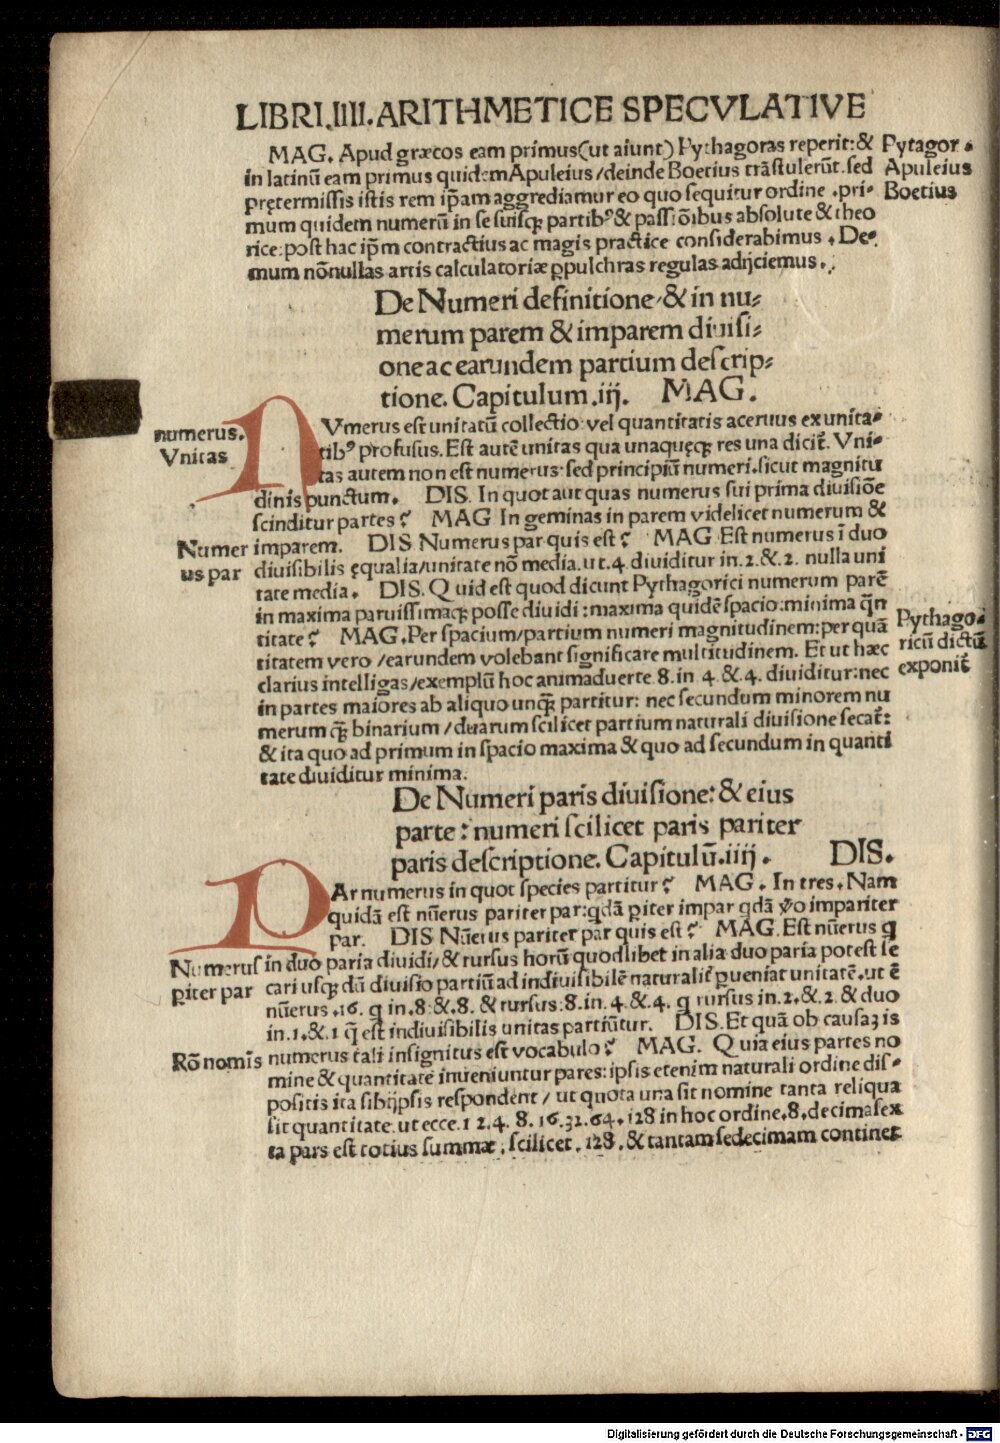 LIBRI.IIII.ARITHMETICE SPECVLATIVE
MAG. Apud græcos eam primus(ut aiunt) Pythagoras reperit:&
in latinū eam primus quidem Apuleius/deinde Boetius trāstulerūt.sed
prętermissis istis rem ip̄am aggrediamur eo quo sequitur ordine .pri-
mum quidem numerū in se suisq; partibꝰ & passiōibus absolute & theo
rice:post hac ip̄m contractius ac magis practice considerabimus . De-
mum nōnullas artis calculatoriæ ꝑpulchras regulas adijciemus.
Pytagor.
Apuleius
Boetius
De Numeri definitione/& in nu-
merum parem & imparem diuisi-
one ac earundem partium descrip-
tione. Capitulum .iij. MAG.
numerus.
Vnitas
NVmerus est unitatū collectio uel quantitatis aceruus ex unita-
tibꝰ profusus. Est autē unitas qua unaquęq; res una dicit̄. Vni-
tas autem non est numerus sed principiū numeri.sicut magnitu
dinis punctum. DIS. In quot aut quas numerus sui prima diuisiōe
scinditur partes? MAG In geminas in parem videlicet numerum &
imparem. DIS Numerus par quis est? MAG Est numerus ī duo
diuisibilis ęqualia/unitate nō media.ut.4. diuiditur in.2.&.2. nulla uni
tate media. DIS. Quid est quod dicunt Pythagorici numerum parē
in maxima paruissimaq; posse diuidi:maxima quidē spacio:minima q̄n
titate? MAG.Per spacium/partium numeri magnitudinem:per quā
titatem vero /earundem volebant significare multitudinem. Et ut hæc
clarius intelligas/exemplū hoc animaduerte.8. in 4.&.4. diuiditur:nec
in partes maiores ab aliquo unq̄ partitur: nec secundum minorem nu
merum q̄ binarium /duarum scilicet partium naturali diuisione secat̄:
& ita quo ad primum in spacio maxima & quo ad secundum in quanti
tate diuiditur minima.
Numer
us par
Pythago-
ricū dictū
exponit̄
De Numeri paris diuisione: & eius
parte: numeri scilicet paris pariter
paris descriptione. Capitulū.iiij. DIS.
PAr numerus in quot species partitur? MAG. In tres. Nam
quidā est nūerus pariter par:qdā ꝑiter impar qdā v̄o impariter
par. DIS Nūerus pariter par quis est? MAG. Est nūerus q
in duo paria diuidi/ & rursus horū quodlibet in alia duo paria potest se
cari usq; dū diuisio partiū ad indiuisibilē naturalit̄ ꝑueniat unitatē.ut ē
nūerus .16. q in.8.&.8. & rursus.8.in.4.&.4. q rursus in.2.&.2. & duo
in.1.&.1 q̄ est indiuisibilis unitas partiūtur. DIS.Et quā ob causaꝫ is
numerus tali insignitus est vocabulo? MAG. Quia eius partes no
mine & quantitate inueniuntur pares: ipsis etenim naturali ordine dis-
positis ita sibijpsis respondent/ ut quota una sit nomine tanta reliqua
sit quantitate.ut ecce.1 2.4. 8. 16.32.64.128 in hoc ordine.8.decimasex
ta pars est totius summæ, scilicet .128. & tantam sedecimam continet
Numerus
ꝑiter par
Rō nomīs
Digitalisierung gefördert durch die Deutsche Forschungsgemeinschaft - DFG